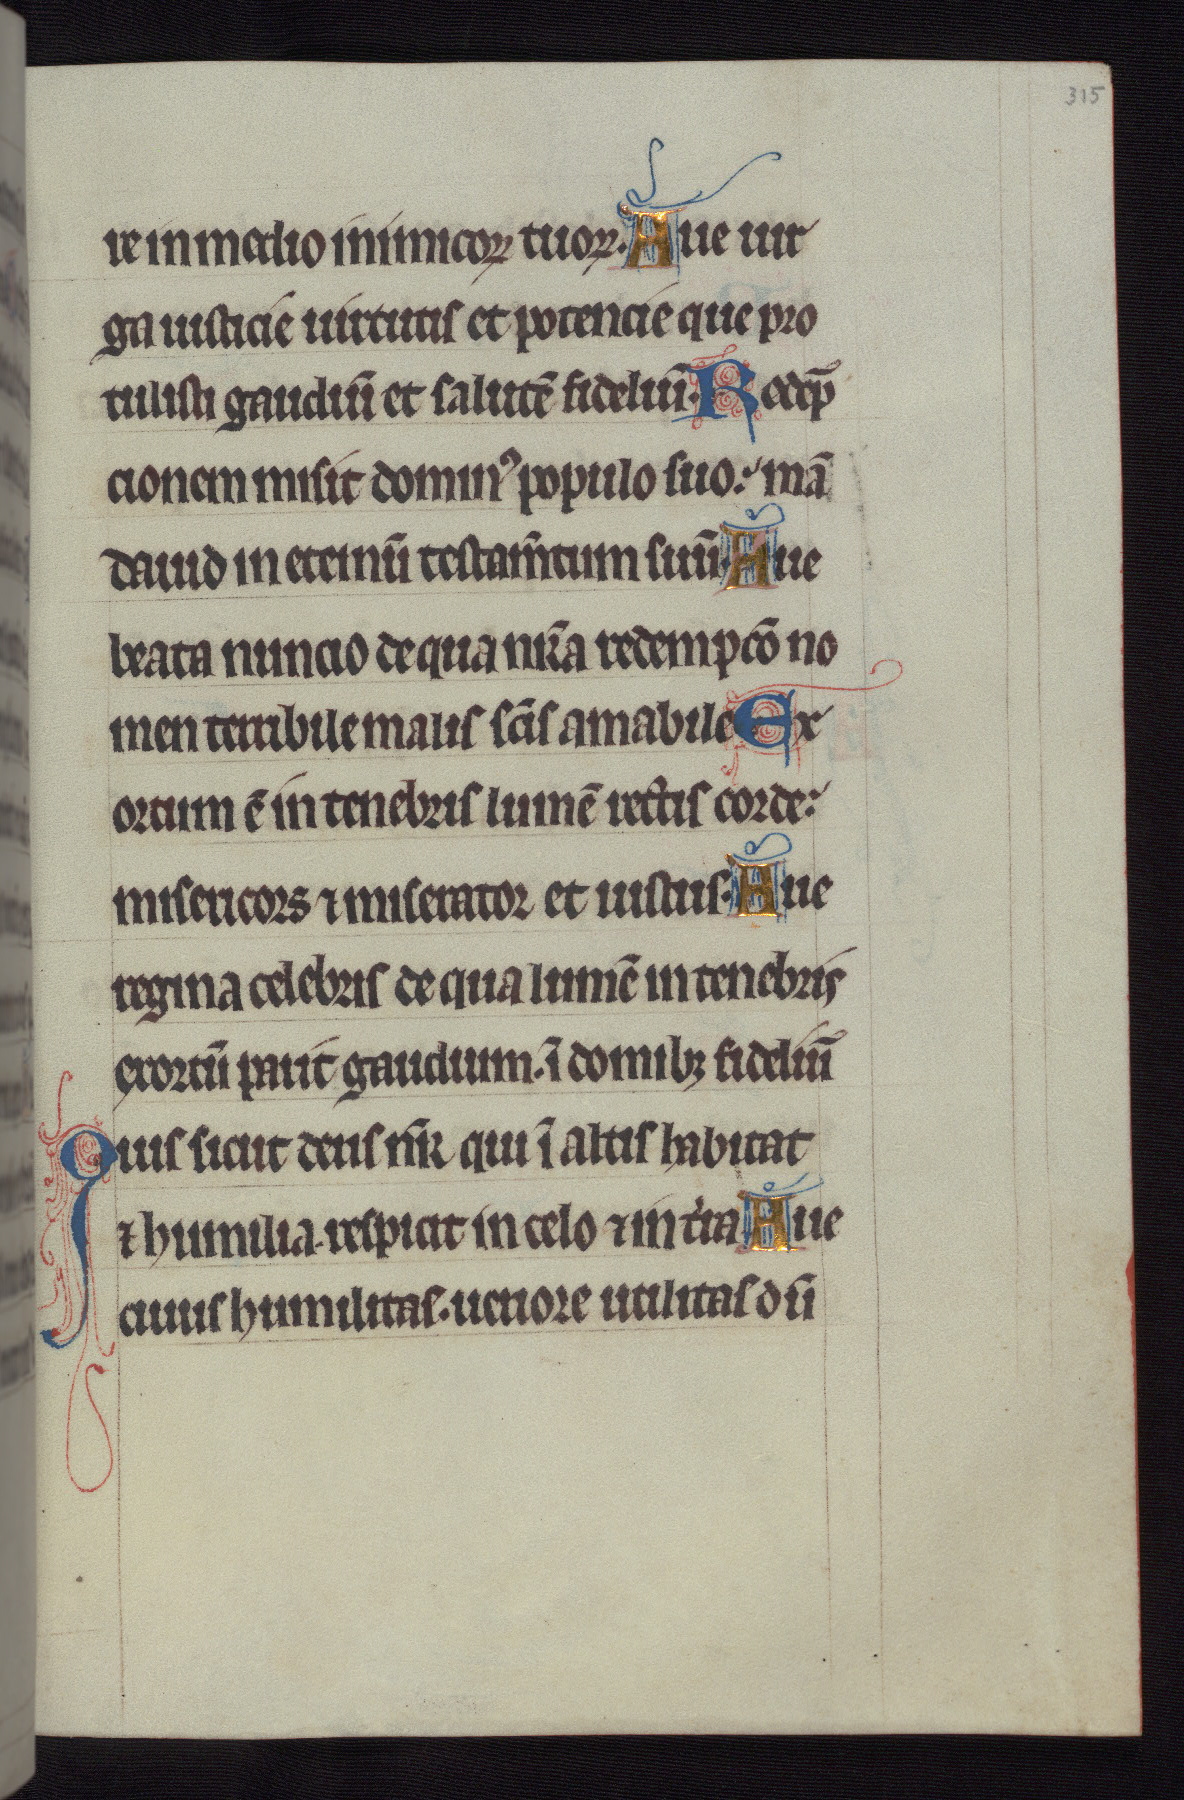 315
re in medio inimicoꝝ tuoꝝ. Aue uir
ga iusticie uirtutis et potencie que pro
tulisti gaudiū et salutē fideliū. Redēp
cionem misit dominꝰ populo suo: mā
dauid in eternū testam̄tum suū. Aue
beata nuncio de qua nr̄a redempcō no
men terribile malis sc̄is amabile Ex
ortum ē in tenebris lumē rectis corde:
misericors ⁊ miserator et iustus. Aue
regina celebris de qua lumē in tenebris
exortū parit gaudium. ī domibꝫ fideliū
Quis sicut deus nr̄ qui ī altis habitat
⁊ humilia respicit in celo ⁊ in t̄ra Aue
cuius humilitas. ueriore utilitas dū